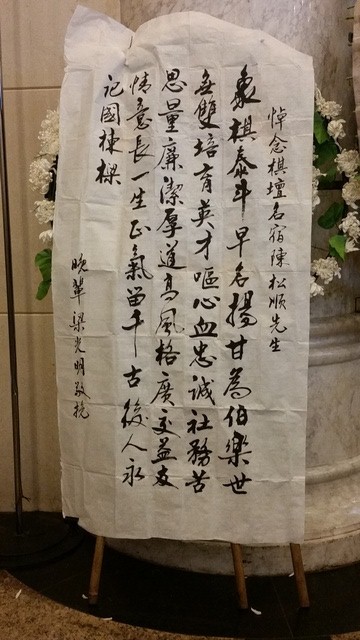 悼念棋壇名宿陳松順先生
象棋泰斗早名揚甘為伯樂世
無雙培育英才嘔心血忠誠社務苦
思量廉潔厚道高風格廣交益友
情意長一生正氣留千古後人永
記國棟樑
晚輩梁光明敬挽